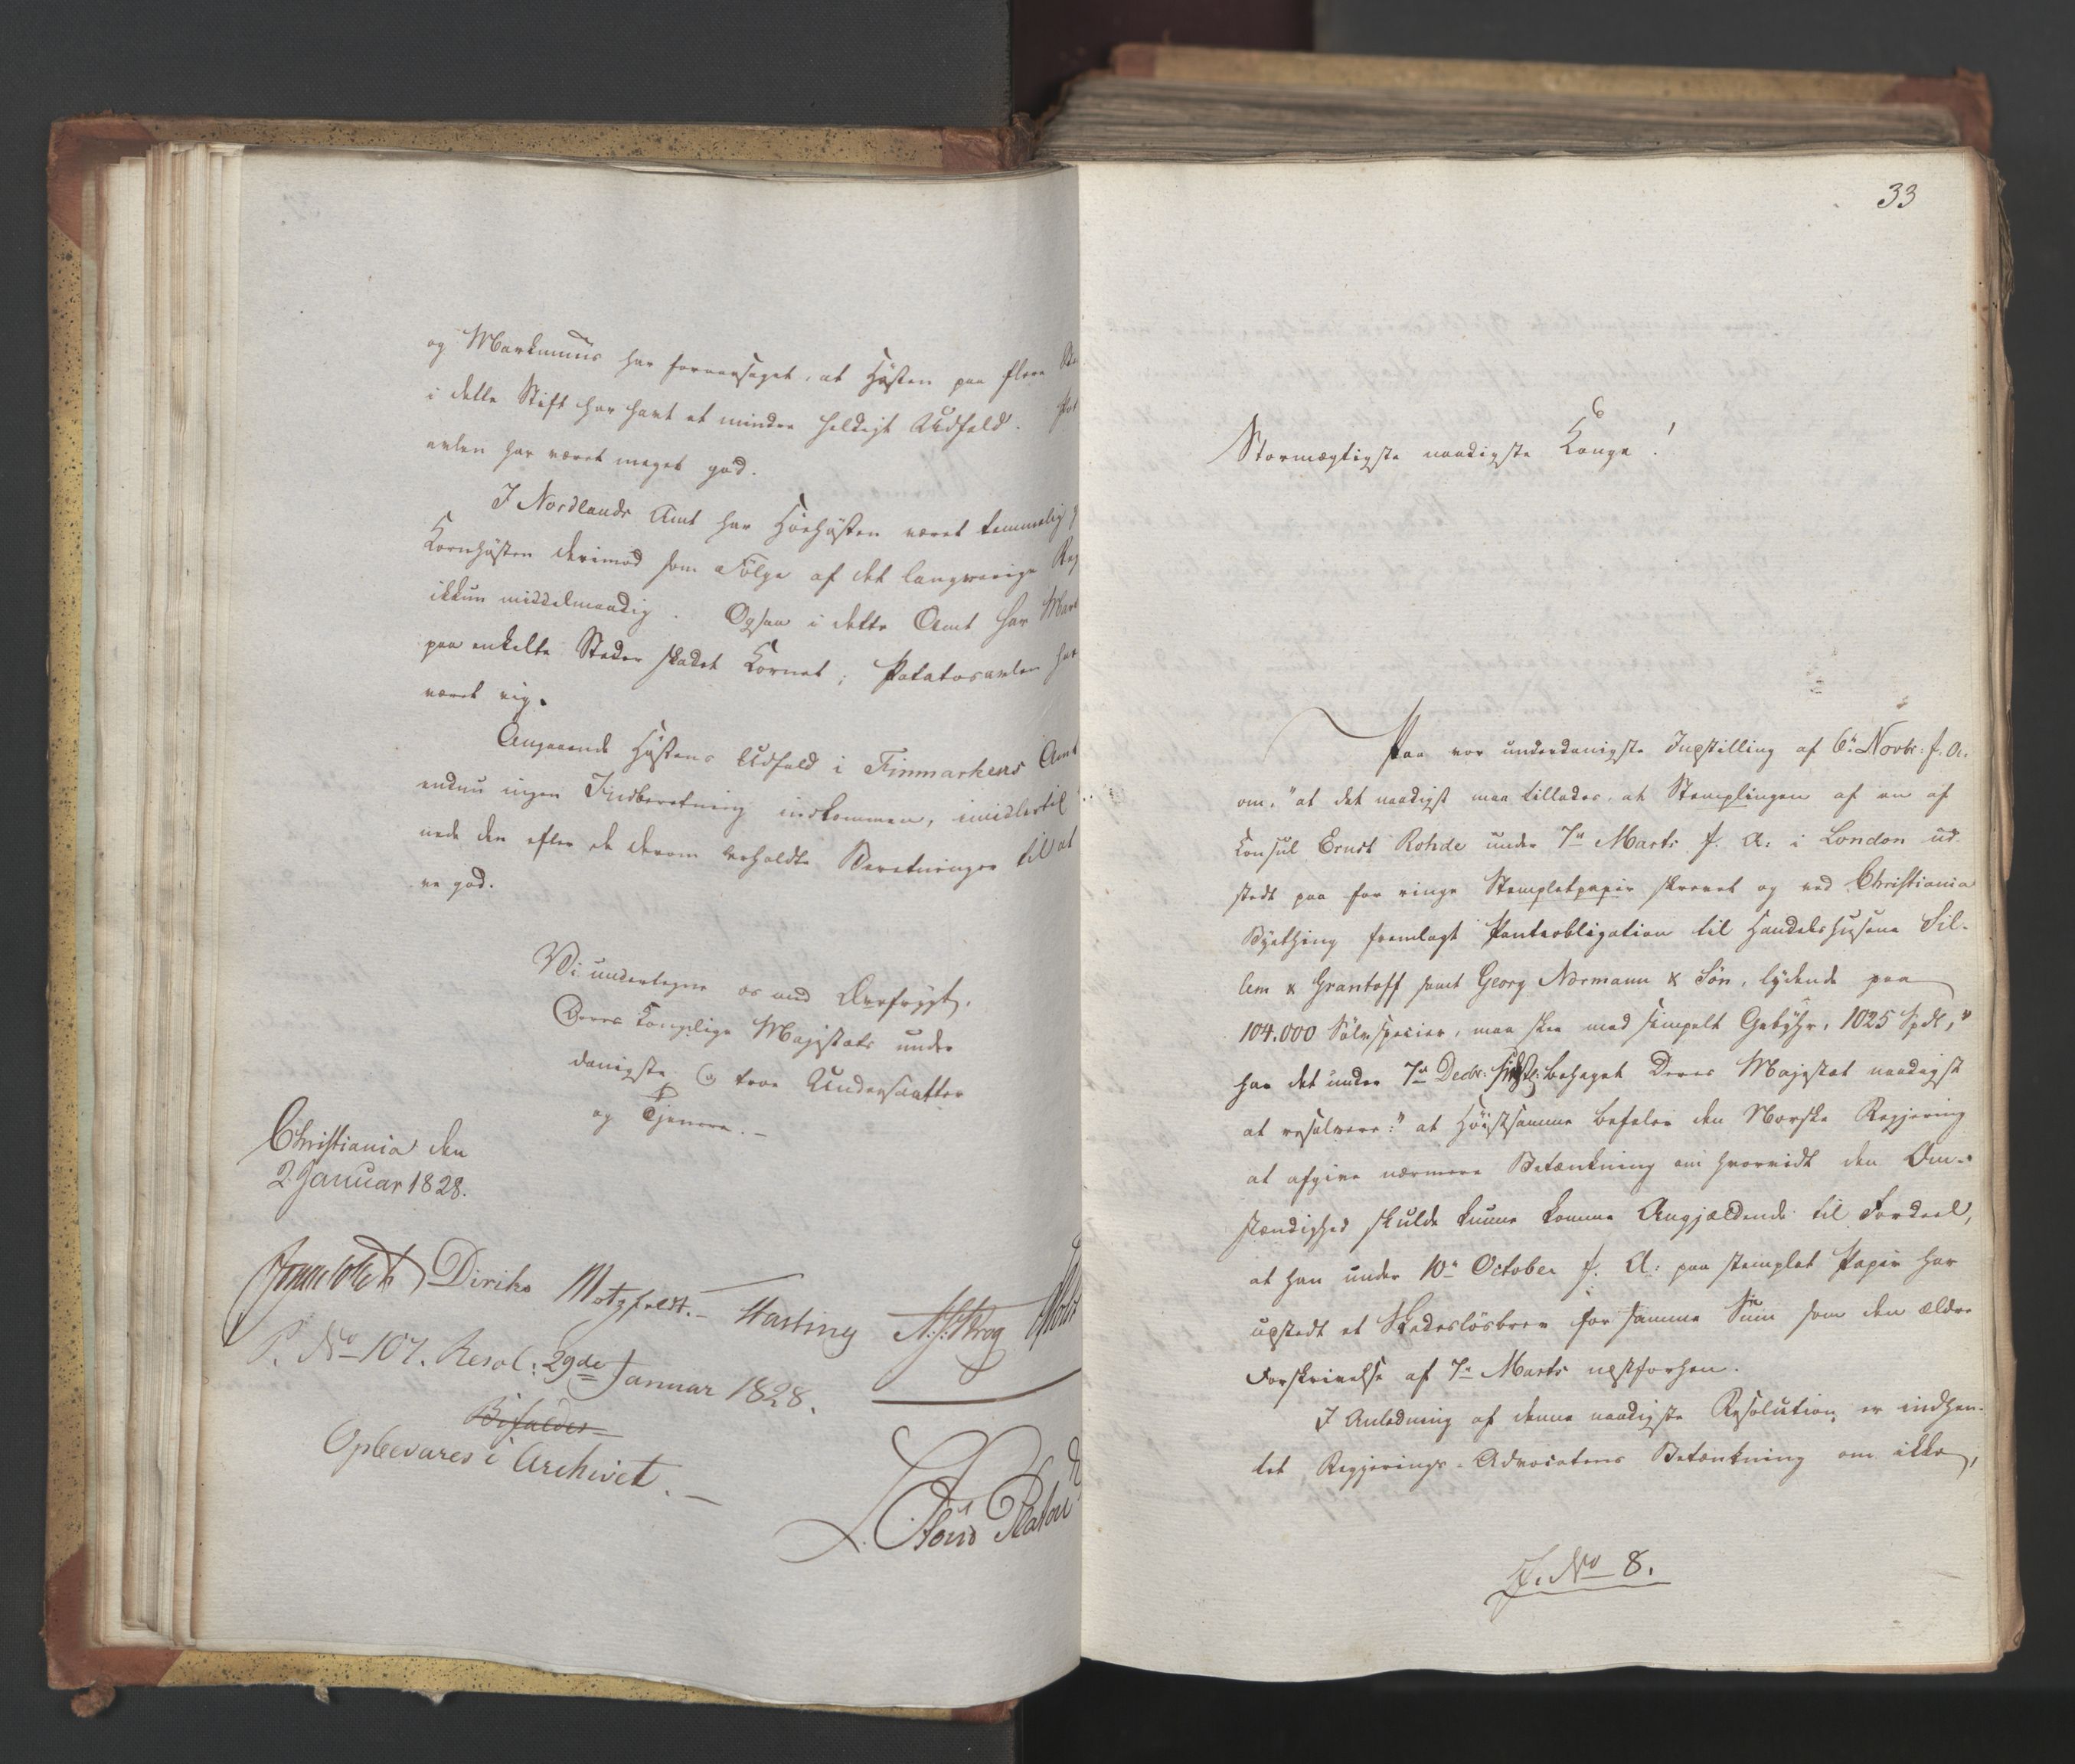 og Markmuus har foraarsaget, at Høsten paa flere
i dette Stift har havt et mindre heldigt Udfald.
avlen har været meget god.
I Nordlands Amt har Höehøsten været temmelig
Kornhøsten derimod som Fölge af det langvarige
ikkun middelmaadig. Ogsaa i dette Amt har
paa enkelte Steder skadet Kornet; Potatosavlen har
været rig.
Angaaende Høstens Udfald i Finmarkens Amt
endnu ingen Indberetning indkommen, imidlertid
nede den efter de derom erholdte Beretninger til at
re god.
Vi undertegne os med Ærefrygt,
Deres Kongelige Majestæts under
danigste og troe Undersaatter
og Tjenere. -
Christiania den
2 Januar 1828.
Diriks Motzfeldt. - Hasting
P. No 107. Resol: 29de Januar 1828.
Bifaldes
Opbevares i Archivet. -
33
Stormægtigste naadigste Konge!
Paa vor underdanigste Indstilling af 6te Novbr: f. A.
om, "at det naadigst maa tillades, at Stemplingen af en af
Consul Ernst Rohde under 7de Marts f. A: i London ud-
stedt paa for ringe Stempletpapir skrevet og ved Christiania
Byething fremlagt Panteobligation til Handelshusene Sil-
lem & Grantoff samt Georg Normann & Sön, lydende paa
104.000 Sölvspecier, maa skee mod simpelt Gebyhr, 1025 Spdl,"
har det under 7de Decbr: sidstl: behaget Deres Majestæt naadigst
at resolvere: "at Höistsamme befaler den Norske Regjering
at afgive nærmere Betænkning om hvorvidt den Om-
stændighed skulde kunne komme Angjældende til Fordeel,
at han under 10de October f. A: paa stemplet Papir har
udstedt et Skadeslösbrev for samme Sum som den ældre
Forskrivelse af 7de Marts næstforhen.
I Anledning af denne naadigste Resolution er indhen-
tet Regjerings-Advocatens Betænkning om ikke,
J. No 8.